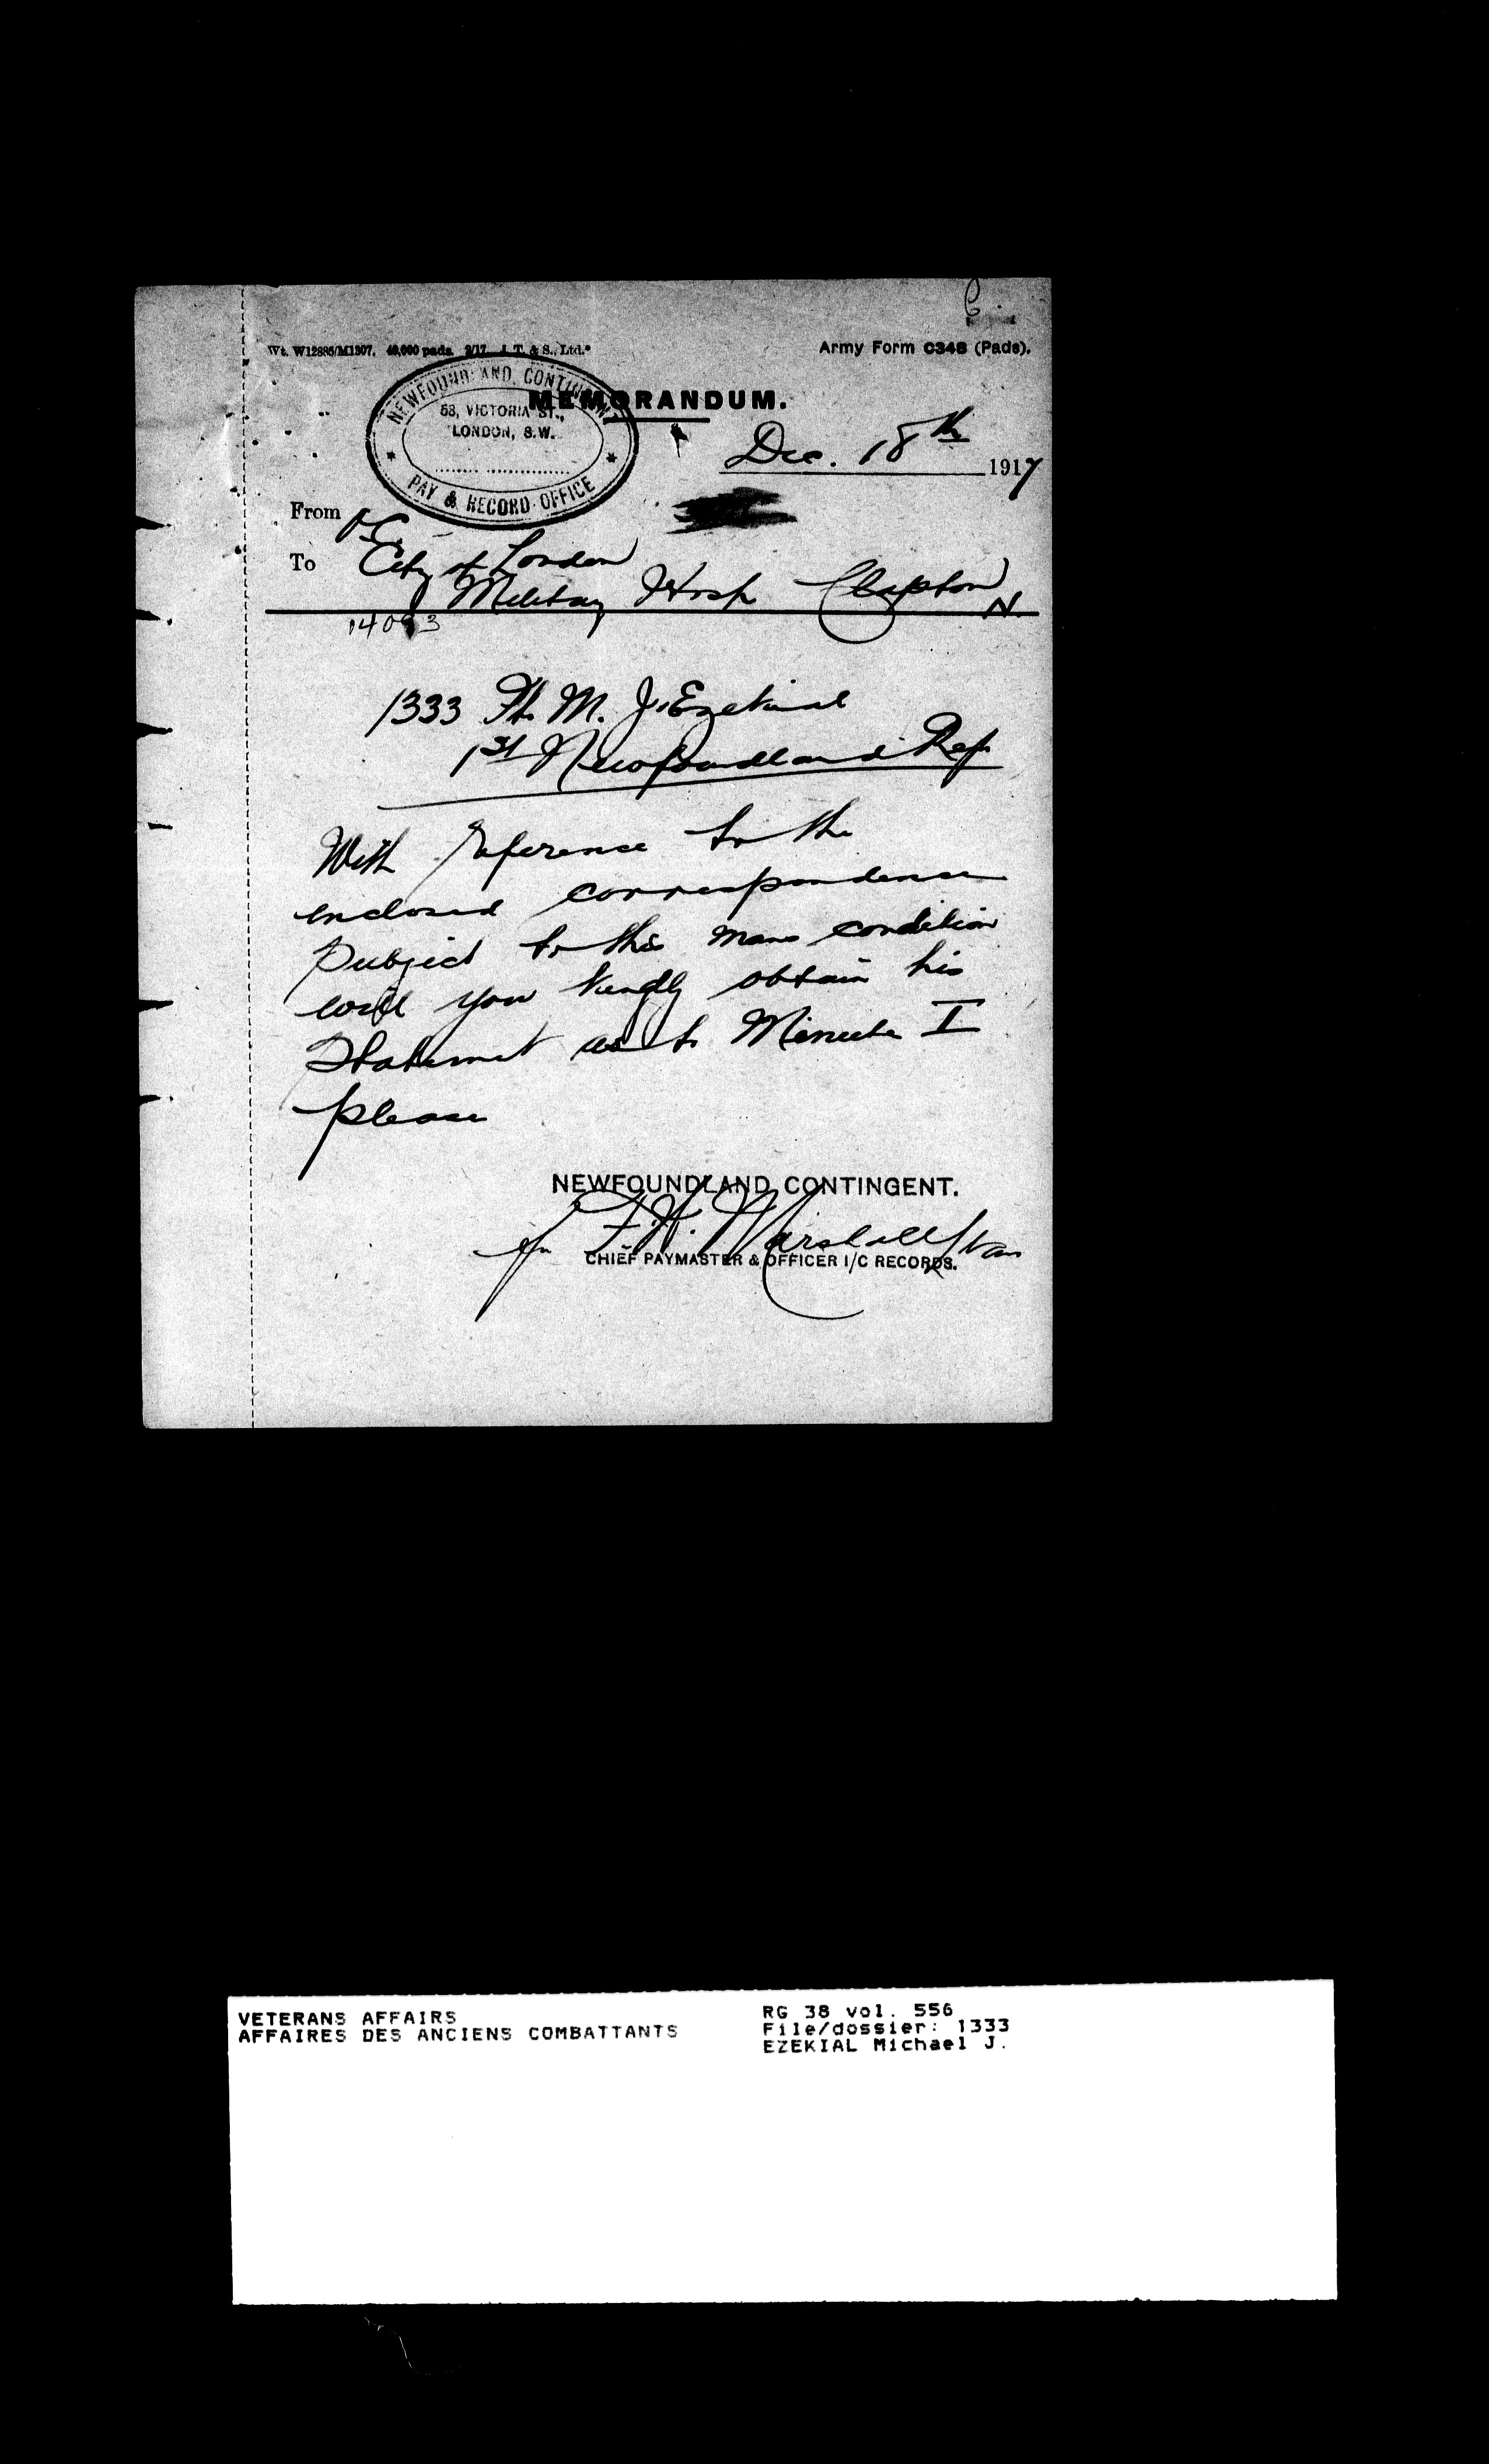 Wt. W12885/M1307. 40,000 pads. 2/17. J. T. & S., Ltd.
Army Form C348 (Pads).
MEMORANDUM.
NEWFOUNDLAND CONTINGENT
58, VICTORIA ST.,
LONDON, S.W.
PAY & RECORD OFFICE
Dec. 18th 1917
From
To O.C.
City of London
Military Hosp Clapton N.
14093
1333 Pt. M. J. Ezekiel
1st Newfoundland Reg.
With reference to the
enclosed correspondence
subject to this mans condition
will you kindly obtain his
Statement as to Minute I
please
NEWFOUNDLAND CONTINGENT.
for F. H. Marshall
CHIEF PAYMASTER & OFFICER I/C RECORDS.
VETERANS AFFAIRS
AFFAIRES DES ANCIENS COMBATTANTS
RG 38 vol. 556
File/dossier: 1333
EZEKIAL Michael J.